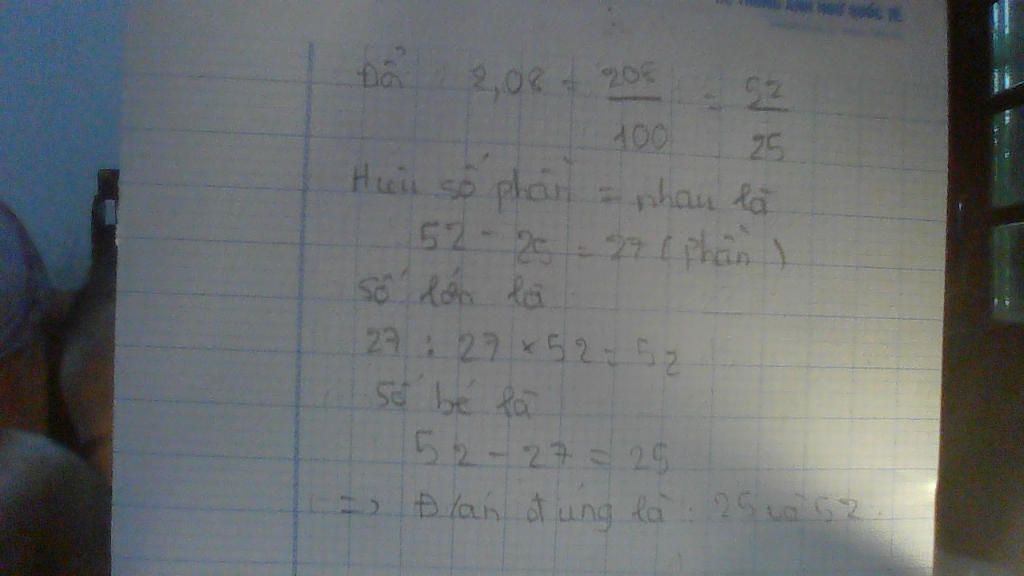 Đổi : 2,08 = 208/100 = 52/25
Hiệu số phần = nhau là
52 - 25 = 27 (phần)
Số lớn là
27 : 27 × 52 = 52
Số bé là
52 - 27 = 25
=> Đ/án đúng là : 25 và 52.